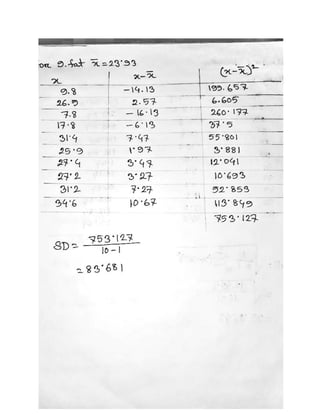 for 9.fat x̄ = 23.93
x x-x̄ (x-x̄)²
9.8 -14.13 199.657
26.5 2.57 6.605
7.8 -16.13 260.177
17.8 -6.13 37.5
31.4 7.47 55.801
25.9 1.97 3.881
27.4 3.47 12.041
27.2 3.27 10.693
31.2 7.27 52.853
34.6 10.67 113.849
753.127
SD = 753.127
10-1
= 83.681